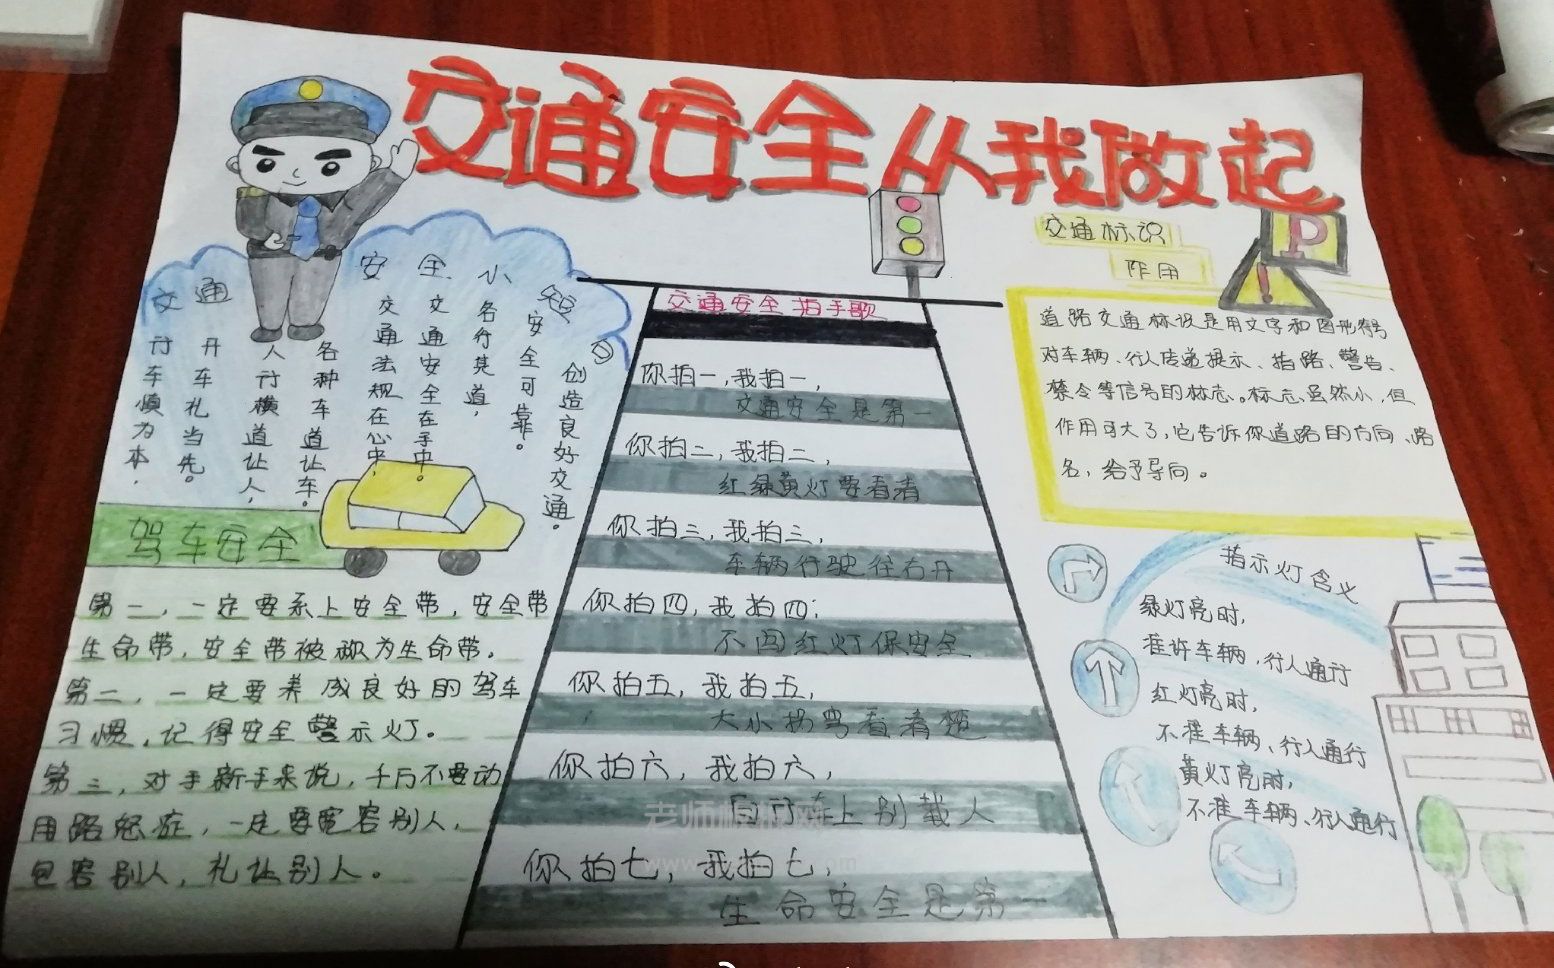 交通安全从我做起
交通安全小短句
创造良好交通。
安全可靠。
各行其道，
交通安全在手中。
交通法规在心中，
各种车道让车。
人行横道让人，
开车礼当先。
行车慎为本，
驾车安全
第一，一定要系上安全带，安全带
生命带，安全带被称为生命带。
第二，一定要养成良好的驾车
习惯，记得安全警示灯。
第三，对于新手来说，千万不要动
用路怒症，一定要宽容别人，
包容别人，礼让别人。
交通安全拍手歌
你拍一，我拍一，
交通安全是第一
你拍二，我拍二，
红绿黄灯要看清
你拍三，我拍三，
车辆行驶往右开
你拍四，我拍四；
不闯红灯保安全
你拍五，我拍五，
大小拐弯看清楚
你拍六，我拍六，
上别载人
老师板报网
你拍七，我拍七，
生命安全是第一
P
交通标识
作用
道路交通标识是用文字和图形符号
对车辆、行人传递提示、指路、警告、
禁令等信号的标志。标志虽然小，但
作用可大了，它告诉你道路的方向、路
名，给予导向。
指示灯含义
绿灯亮时，
准许车辆、行人通行
红灯亮时，
不准车辆、行人通行
黄灯亮时，
不准车辆、行人通行